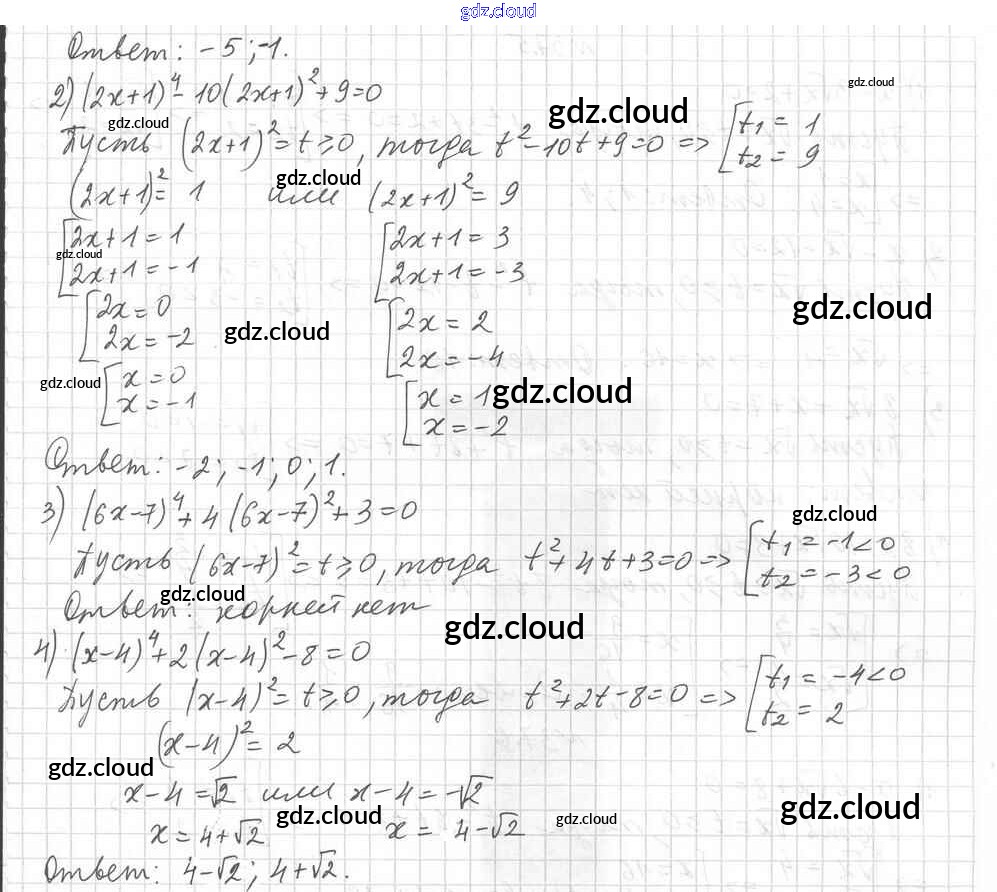 gdz.cloud
Ответ: -5; -1.
2) (2x+1)⁴ - 10(2x+1)² + 9 = 0
gdz.cloud
gdz.cloud
gdz.cloud
Пусть (2x+1)² = t ⩾ 0, тогда t² - 10t + 9 = 0 => [t₁ = 1
t₂ = 9
gdz.cloud
(2x+1)² = 1 или (2x+1)² = 9
[2x+1 = 1 [2x+1 = 3
gdz.cloud
2x+1 = -1 2x+1 = -3
gdz.cloud
[2x = 0 [2x = 2
gdz.cloud
2x = -2 2x = -4
gdz.cloud
[x = 0 [x = 1
gdz.cloud
x = -1 x = -2
Ответ: -2; -1; 0; 1.
3) (6x-7)⁴ + 4(6x-7)² + 3 = 0
gdz.cloud
Пусть (6x-7)² = t ⩾ 0, тогда t² + 4t + 3 = 0 => [t₁ = -1 < 0
t₂ = -3 < 0
gdz.cloud
Ответ: корней нет
gdz.cloud
4) (x-4)⁴ + 2(x-4)² - 8 = 0
Пусть (x-4)² = t ⩾ 0, тогда t² + 2t - 8 = 0 => [t₁ = -4 < 0
t₂ = 2
(x-4)² = 2
gdz.cloud
x-4 = √2 или x-4 = -√2
gdz.cloud
gdz.cloud
gdz.cloud
x = 4+√2 x = 4-√2
Ответ: 4-√2; 4+√2.